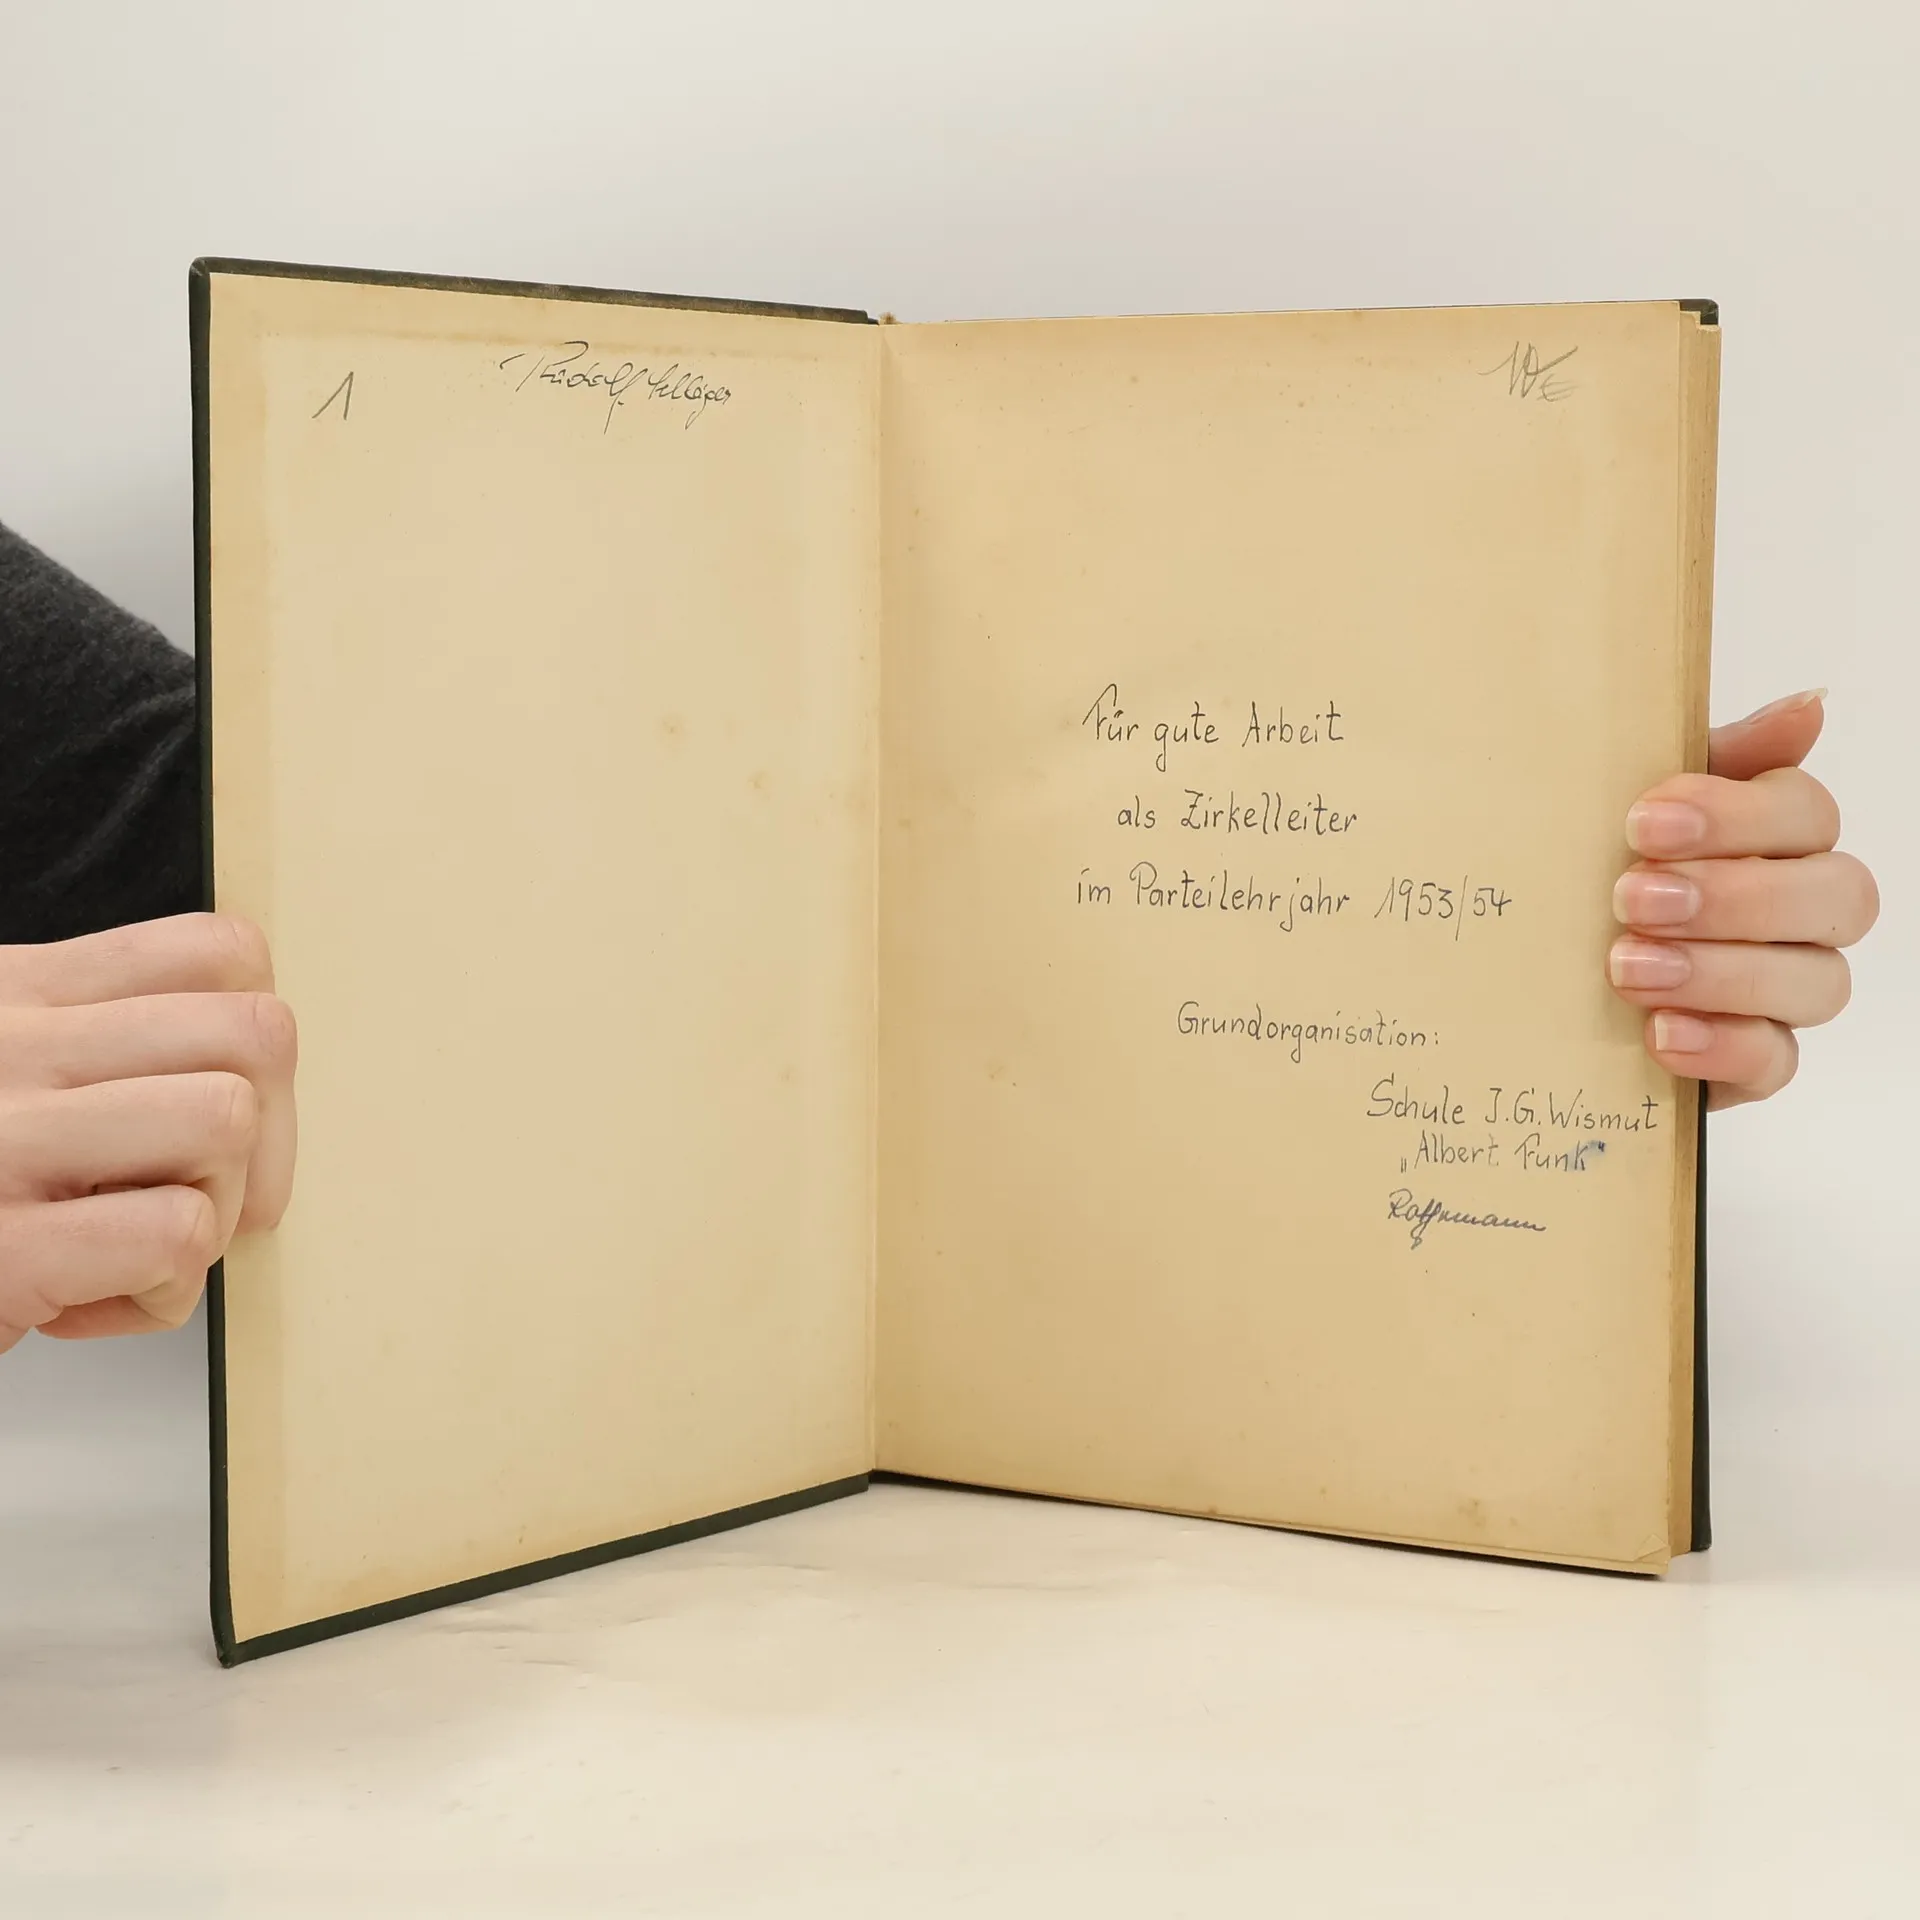 1
Rudolf
10€
Für gute Arbeit
als Zirkelleiter
im Parteilehrjahr 1953/54
Grundorganisation:
Schule I.G. Wismut
„Albert Funk"